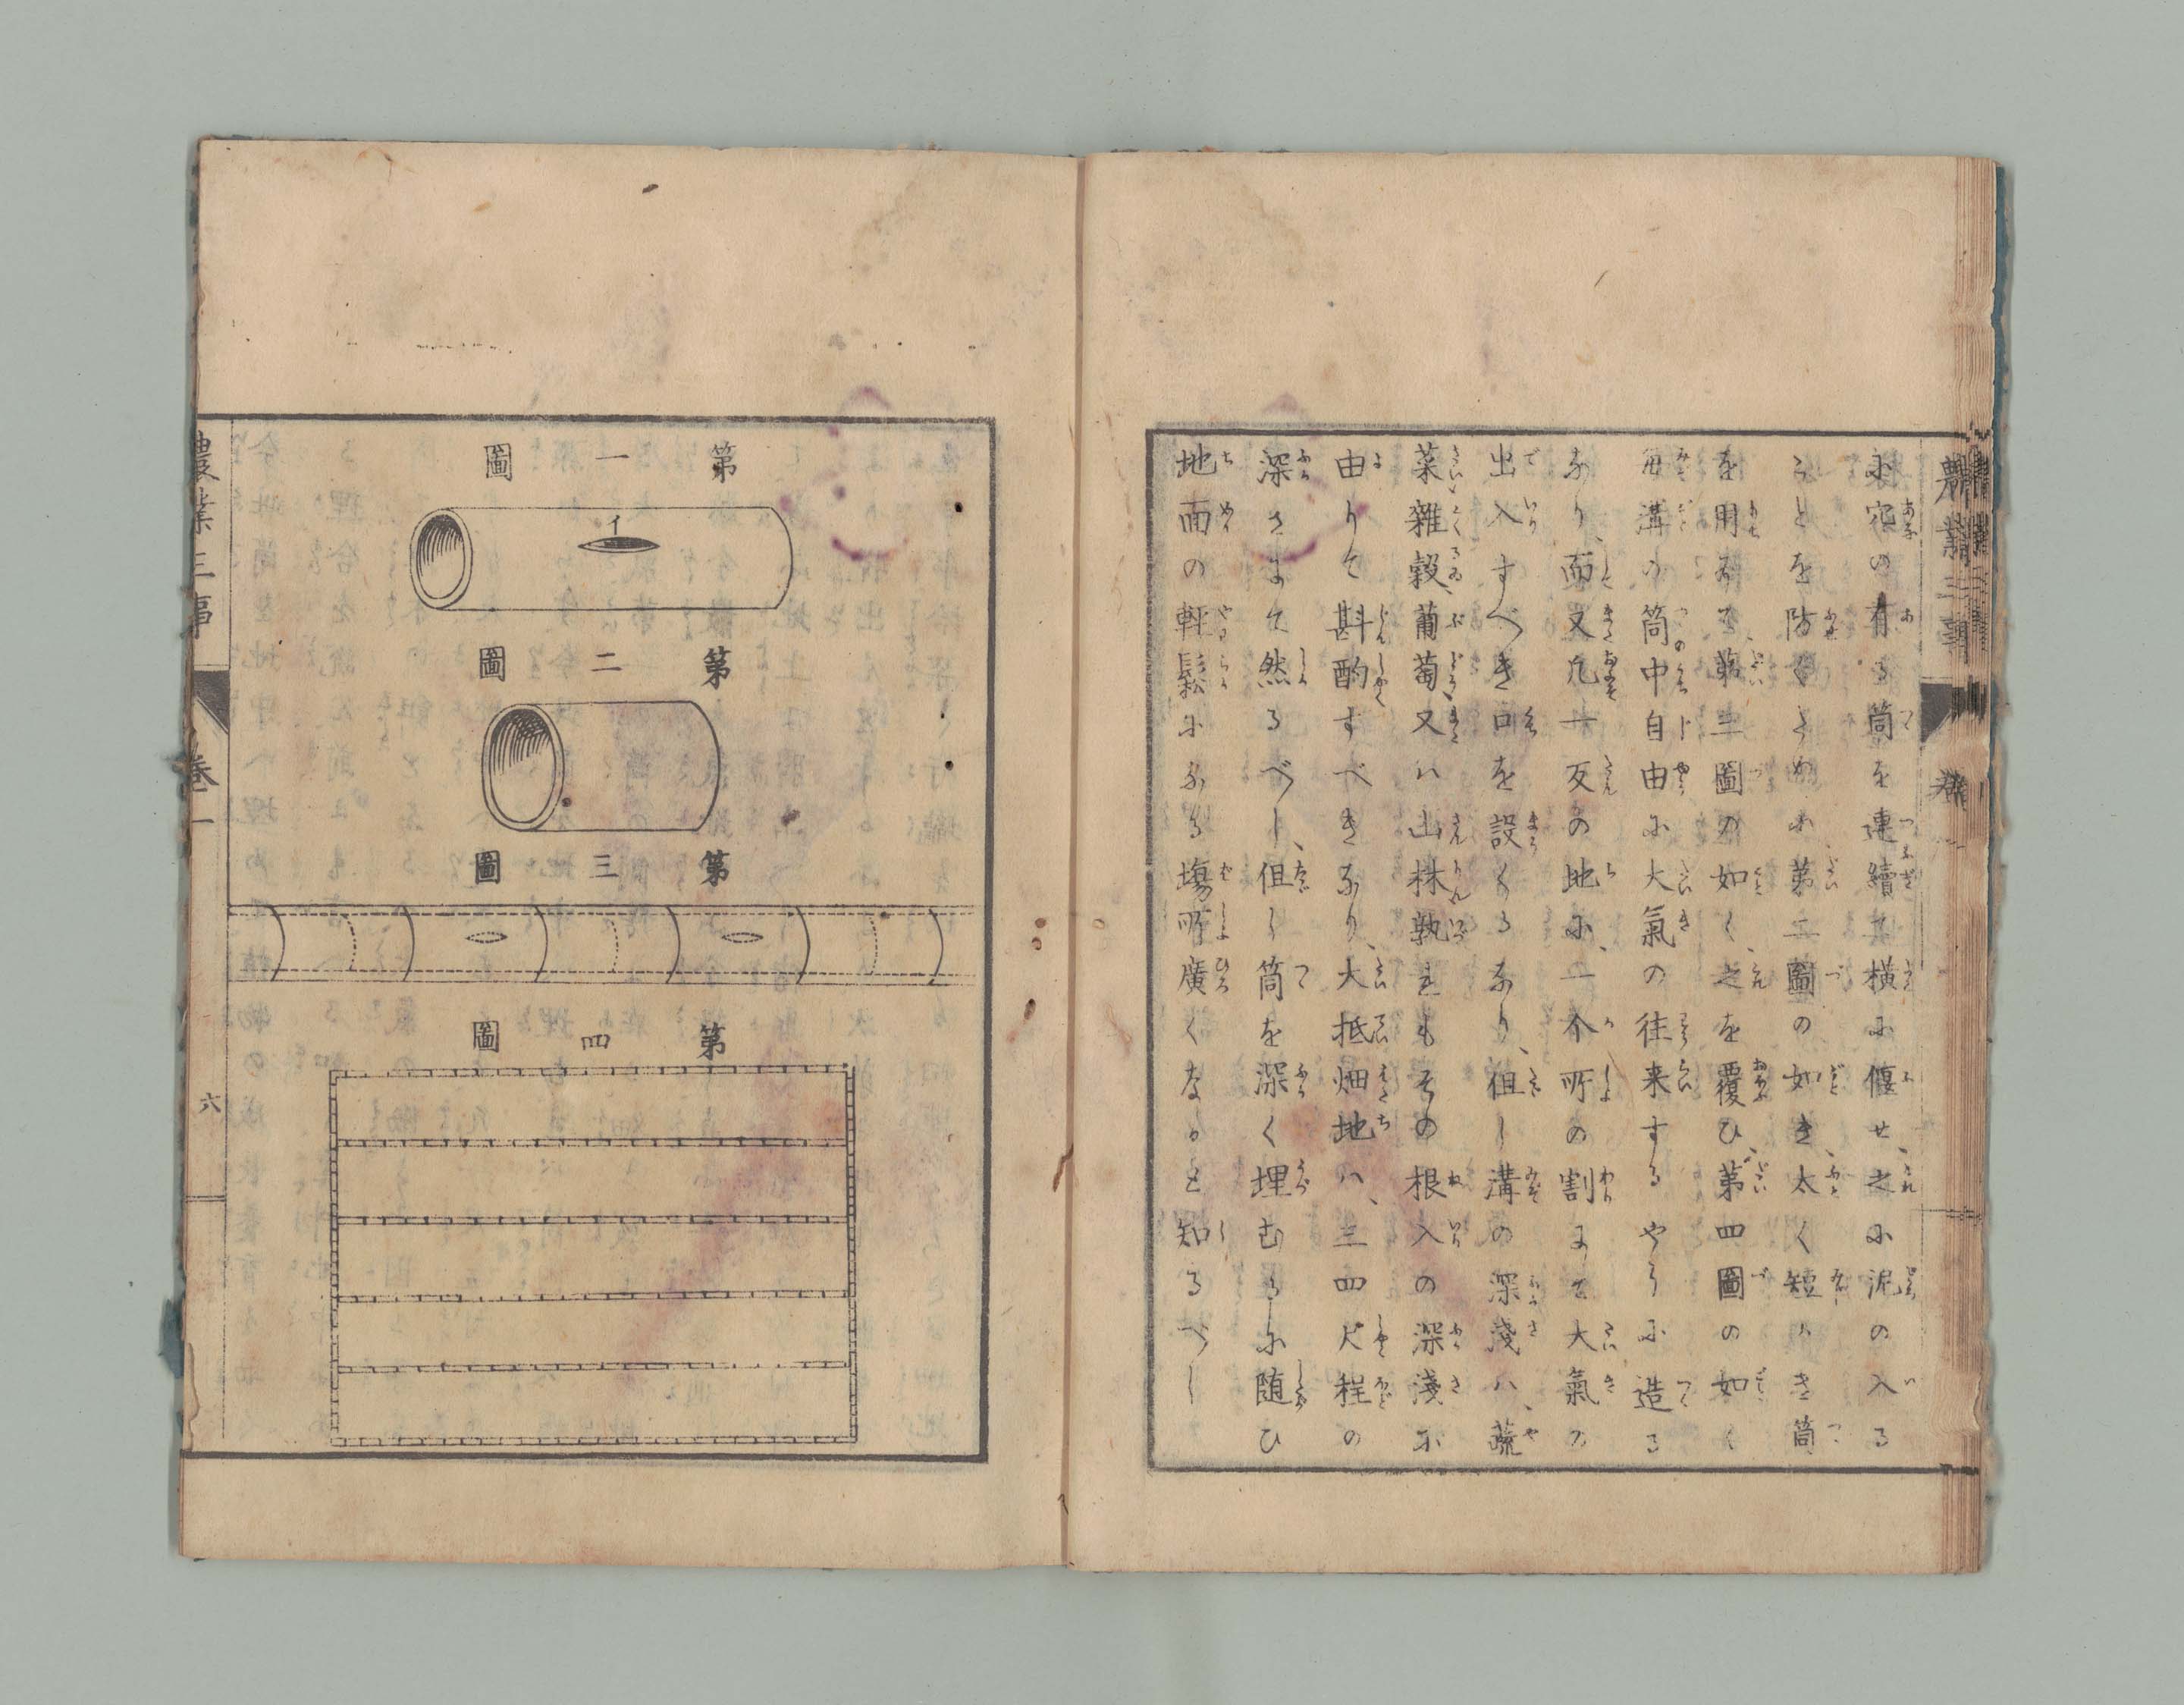 農業三事
卷一
に穴の有る筒を連續て横に偃せ、之に泥の入る
ことを防ぐため小、第二圖の如き、太く短かき筒
を用ゐて、第三圖の如く、之を覆ひ、第四圖の如く
毎溝の筒中自由に大氣の往来するやうに造る
なり、而又凡一反の地に、一个所の割まて大氣の
出入すべき口を設くるなり、徂し溝の深淺ハ、蔬
菜雜穀、葡萄、又ハ山林孰れもその根入の深淺に
由りて斟酌すべきなり、大抵畑地ハ、三四尺程の
深さまて然るべし、伹し筒を深く埋むるに随ひ
地面の軽鬆になる塲所廣くなると知るべし
第一圖
イ
第二圖
第三圖
第四圖
農業三事
卷一
六